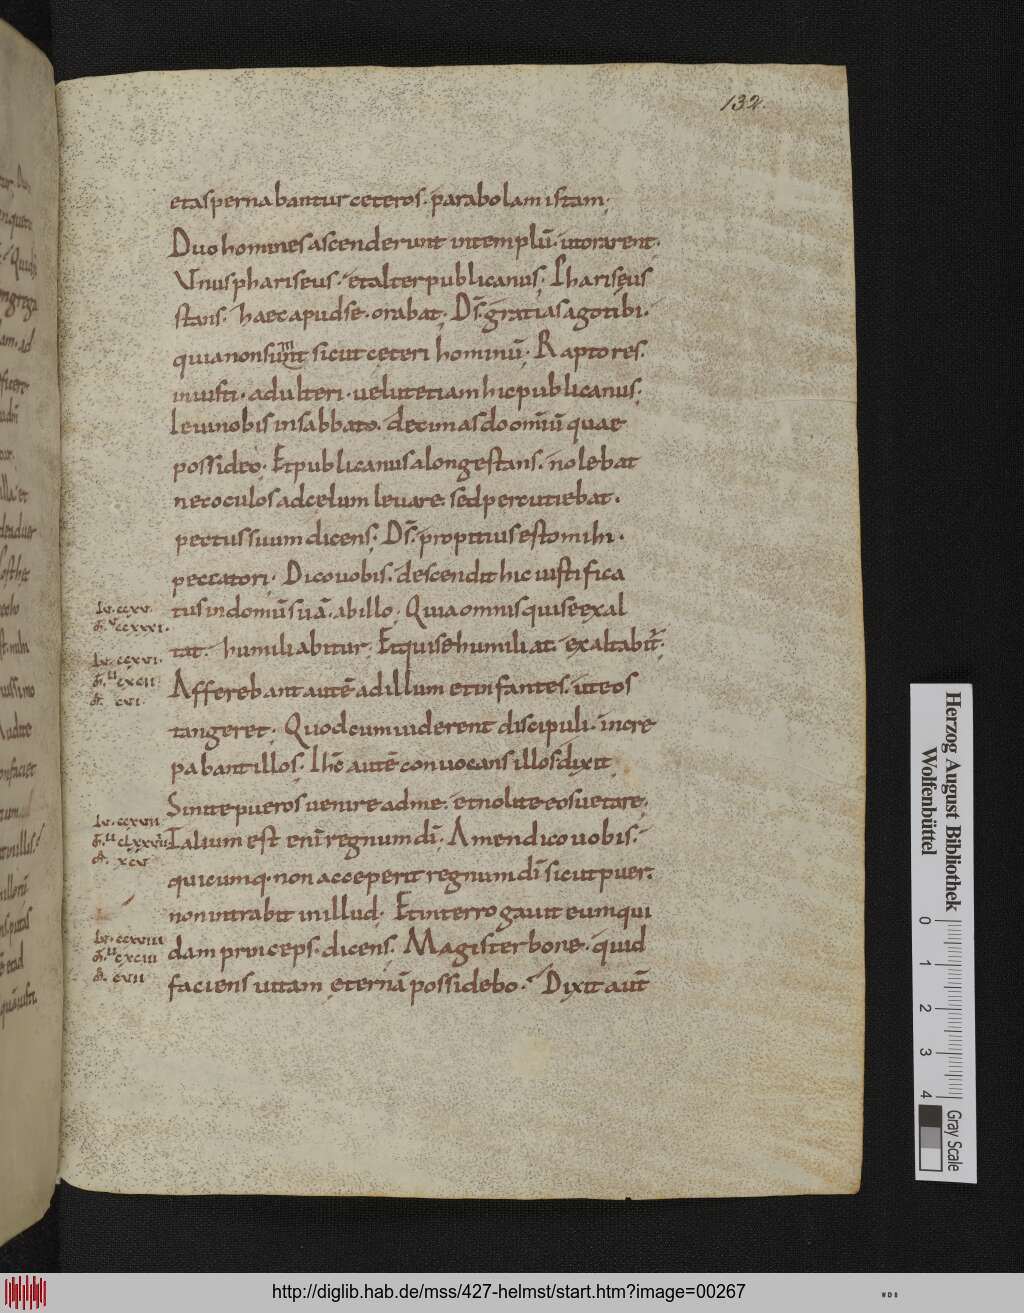 132.
et aspernabantur ceteros. parabolam istam.
Duo homines ascenderunt in templū. ut orarent.
Vnus phariseus. et alter publicanus. Phariseus
stans. haec apud se. orabat. Dš. gratias ago tibi.
quia non sunt sicut cęteri hominū. Raptores.
iniusti. adulteri. uelut etiam hic publicanus.
Ieiuno bis in sabbato. decimas do omīū quae
possideo. Et publicanus a longe stans. nolebat
nec oculos ad celum leuare. sed percutiebat.
pectus suum dicens. Dš. propitius esto mihi.
peccatori. Dico uobis. descendit hic iustifica
tus in domū suā. ab illo. Quia omnis qui se exal
tat. humiliabitur. Et qui se humiliat. exaltabit̄.
Afferebant autē ad illum et infantes. ut eos
tangeret. Quod cum uiderent discipuli. incre
pabant illos. Ihc̄ autē conuocans illos dixit
Sinite pueros uenire ad me. et nolite eos uetare.
Talium est enī regnum dī. Amen dico uobis.
quicumq. non acceperit regnum dī sicut puer.
non intrabit in illud. Et interrogauit eum qui
dam princeps. dicens. Magister bone. quid
faciens uitam ęternā possidebo. Dixit aut̄
Herzog August Bibliothek
Wolfenbüttel
0 1 2 3 4
Gray Scale
http://diglib.hab.de/mss/427-helmst/start.htm?image=00267